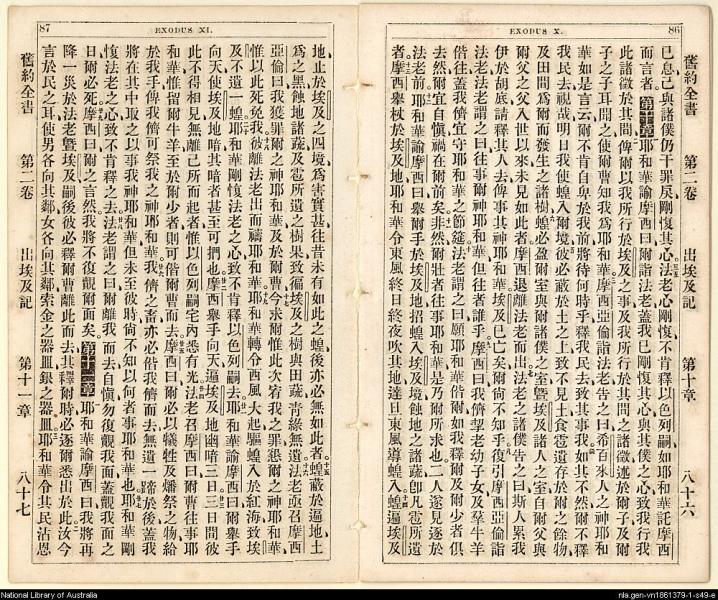 EXODUS X. 86
舊約全書 第二卷 出埃及記 第十章 八十六
已息己與諸僕仍干罪戾剛愎其心法老心剛愎不肯釋以色列嗣如耶和華託摩西
而言者第十章耶和華諭摩西曰爾詣法老蓋我已剛愎其心與其僕之心致我行我
此諸徵於其間俾爾以我所行於埃及之事及我所行於其間之諸徵述於爾子及爾
子之子耳聞之使爾曹知我為耶和華摩西亞倫詣法老告之曰希百來人之神耶和
華如是言云爾不肯自卑於我前將待何時乎釋我民去致其事我如其不然爾不釋
我民去視哉明日我使蝗入爾境彼必蔽於土之上致不見土食雹遺存於爾之餘物
及田間為爾而發生之諸樹蝗必盈爾室與爾諸僕之室暨埃及諸人之室自爾父與
爾父之父入世以來未見如此者摩西退離法老而出法老之諸僕告之曰斯人累我
伊於胡底請釋其人去俾事其神耶和華埃及已亡矣爾尚不知乎復引摩西亞倫詣
法老法老謂之曰往事爾神耶和華但往者誰乎摩西曰我儕挈老幼子女及羣牛羊
偕往蓋我儕宜守耶和華之節筵法老謂之曰願耶和華偕爾如我釋爾及爾少者俱
去然爾宜自慎禍在爾前矣非然爾壯者往事耶和華是乃爾所求也二人遂見逐於
法老前耶和華諭摩西曰舉爾手於埃及地招蝗入埃及地之諸蔬卽凡雹所遺
者摩西舉杖於埃及地耶和華令東風終日終夜吹其地達旦東風導蝗入蝗遍埃及
87 EXODUS XI.
地止於埃及之四境為害實甚往昔未有如此之蝗後亦必無如此者蝗蔽於遍地土
為之黑蝕地諸蔬及雹所遺之樹果致徧埃及之樹與田蔬青綠無遺法老亟召摩西
亞倫曰我獲罪爾之神耶和華及於爾曹今求爾惟此次宥我之罪懇爾之神耶和華
惟以此死免我彼離法老出而禱耶和華耶和華轉令西風大起驅蝗入於紅海致埃
及不遺一蝗耶和華剛愎法老之心致不肯釋以色列嗣去耶和華諭摩西曰爾舉手
向天使埃及地暗其暗者甚至可捫也摩西舉手向天遍埃及地幽暗三日三日間彼
此不得相見無離己所而起者惟以色列嗣宅內悉有光法老召摩西曰爾曹往事耶
和華惟留爾牛羊至於爾少者則可偕爾曹而去摩西曰爾必以犧牲及燔祭之物給
於我手俾我儕可祭我之神耶和華我儕之畜亦必偕我儕而去無遺一蹄於後蓋我
將在其中取之以事我神耶和華但未至彼時尚不知以何者事耶和華也耶和華剛
愎法老之心致不肯釋之去法老謂之曰爾離我而去自慎勿復覿我面蓋覿我面之
日爾必死摩西曰爾之言然我將不復覿爾面矣第十一章耶和華諭摩西曰我將再
降一災於法老暨埃及嗣後彼必釋爾曹離此而去其釋爾時必逐爾悉出於此汝今
言於民之耳使男各向其鄰女各向其鄰索金之器皿銀之器皿耶和華令其民沾恩
舊約全書 第二卷 出埃及記 第十一章 八十七
National Library of Australia
nla.gen-vn1861379-1-s49-e